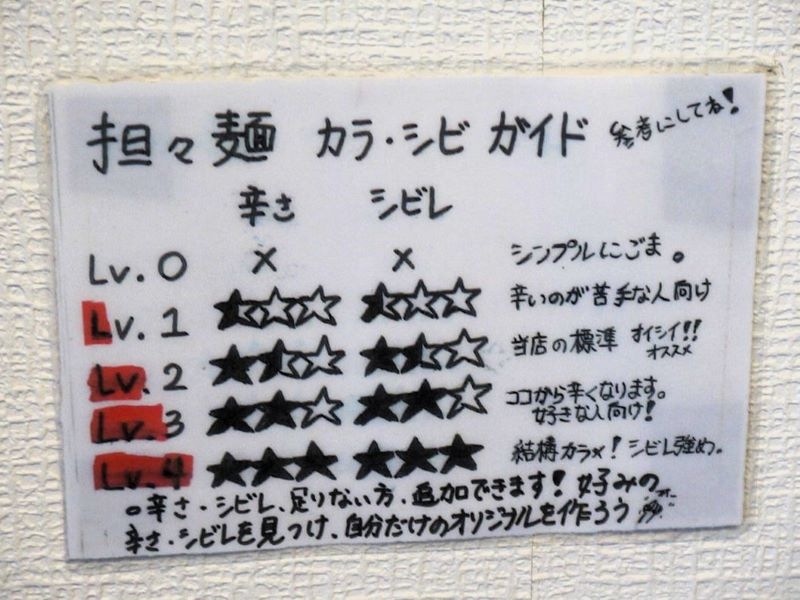 担々麺 カラ・シビ ガイド 参考にしてね!
辛さ シビレ
Lv.0 × × シンプルにごま。
Lv.1 ★☆☆ ★☆☆ 辛いのが苦手な人向け
Lv.2 ★★☆ ★★☆ 当店の標準 オイシイ!! オススメ
Lv.3 ★★☆ ★★☆ ココから辛くなります。好きな人向け!
Lv.4 ★★★ ★★★ 結構カラメ! シビレ強め。
○辛さ・シビレ、足りない方、追加できます! 好みの
辛さ・シビレを見つけ、自分だけのオリジナルを作ろう